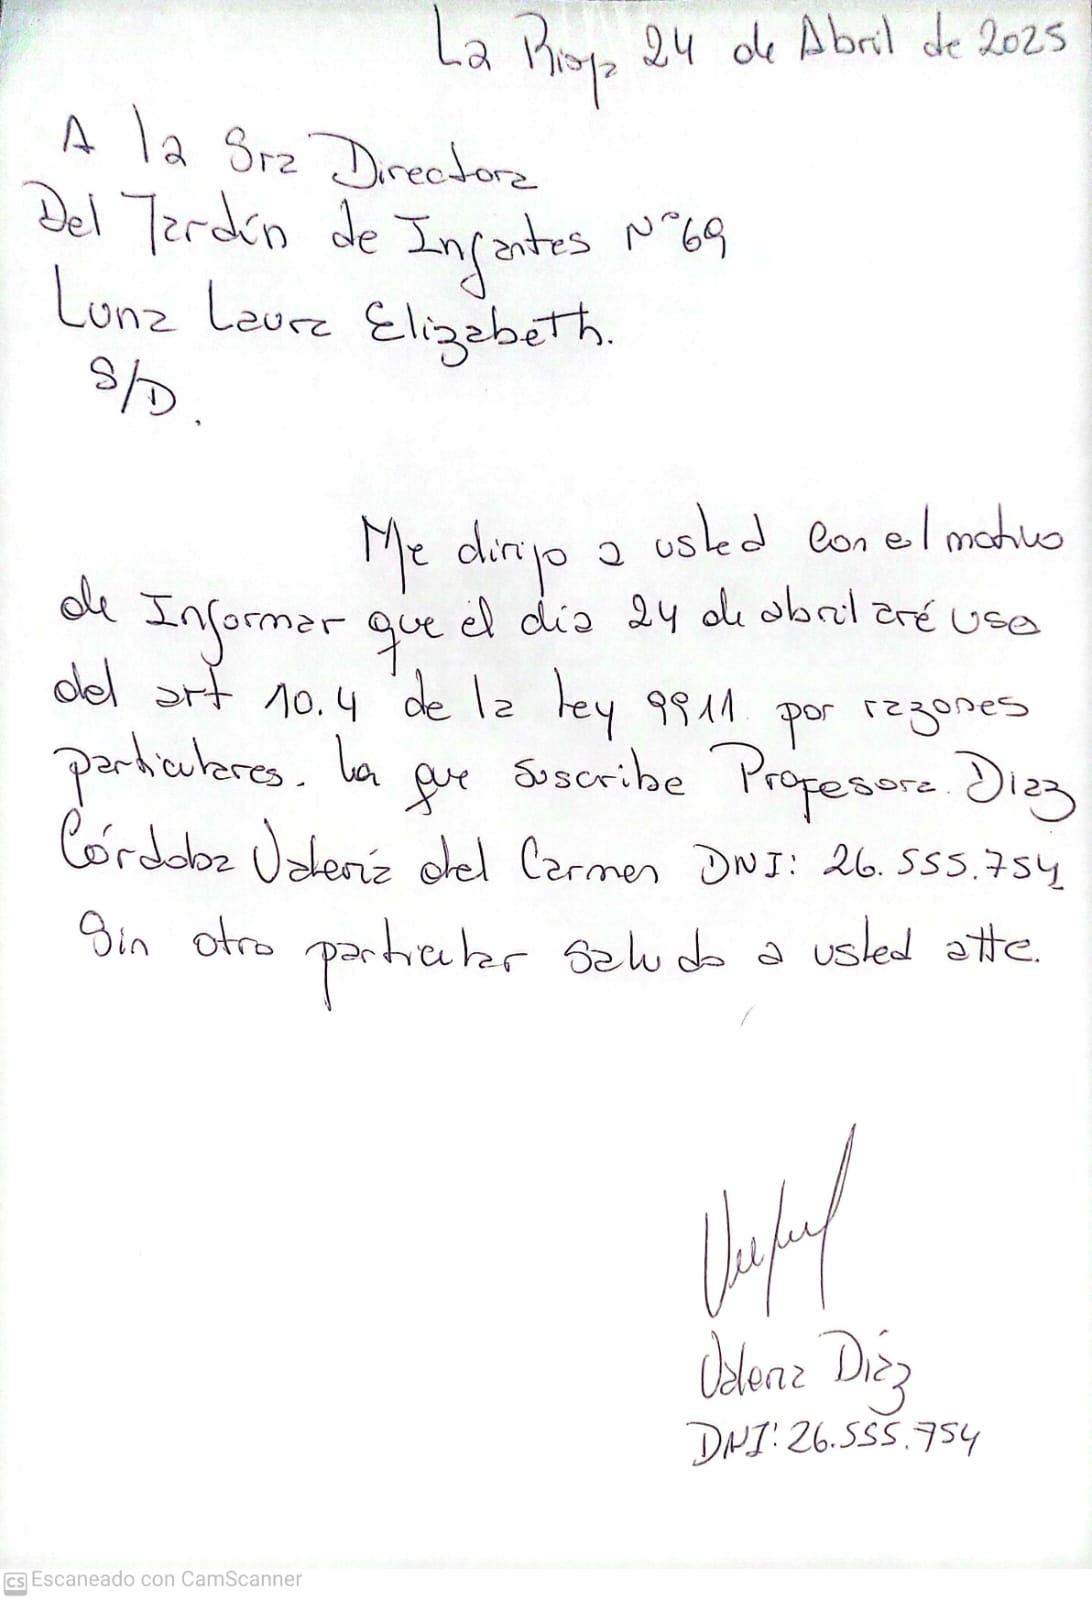 La Rioja 24 de Abril de 2025
A la Sra Directora
Del Jardín de Infantes N°69
Luna Laura Elizabeth.
S/D.
Me dirijo a usted con el motivo
de Informar que él día 24 de abril aré uso
del art 10.4 de la ley 9911 por razones
particulares. La que suscribe Profesora. Díaz
Córdoba Valeria del Carmen DNI: 26.555.754
Sin otro particular saludo a usted atte.
Valeria Díaz
DNI: 26.555.754
CS Escaneado con CamScanner